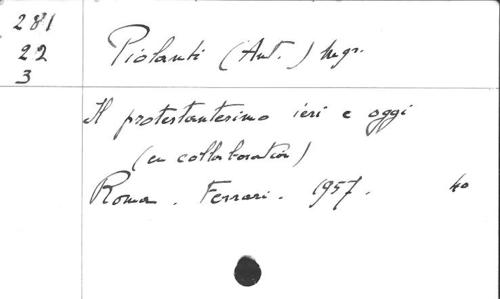 281
22
3
Piolanti (Ant.) Mgr.
Il protestantesimo ieri e oggi
(en collaboration)
Roma. Ferrari. 1957.